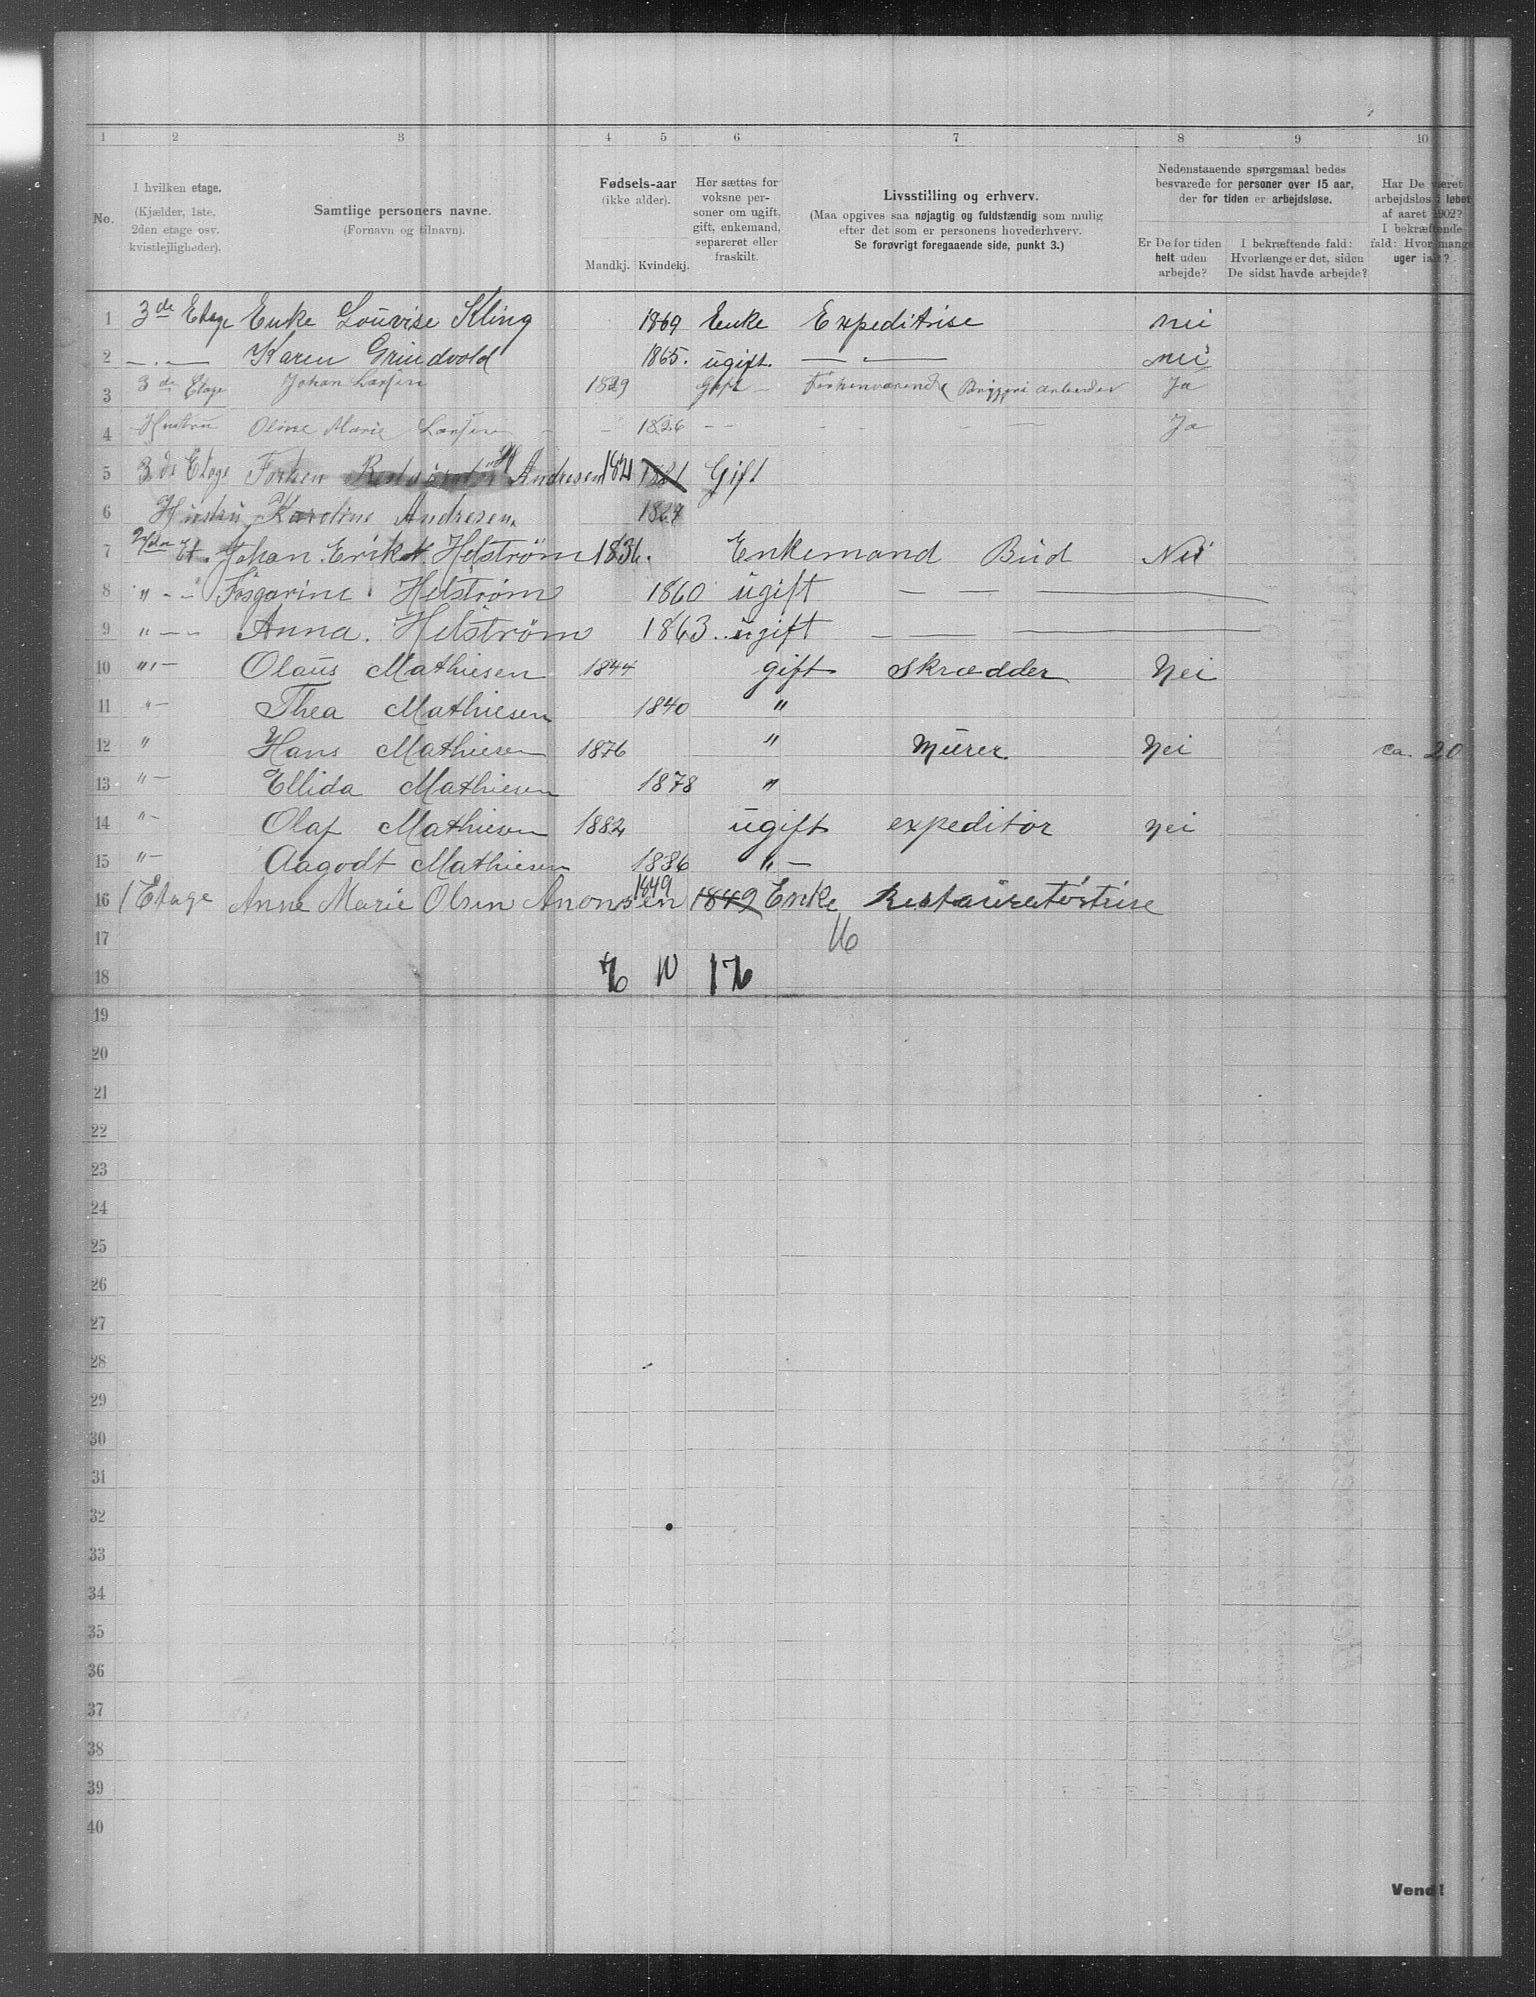 1 2 3 4 5 6 7 8 9 10
No.
I hvilken etage.
(Kjælder, 1ste,
2den etage osv.
kvistlejligheder).
Samtlige personers navne.
(Fornavn og tilnavn).
Fødsels-aar
(ikke alder).
Mandkj. Kvindekj.
Her sættes for
voksne per-
soner om ugift,
gift, enkemand,
separeret eller
fraskilt.
Livsstilling og erhverv.
(Maa opgives saa nøjagtig og fuldstændig som mulig
efter det som er personens hovederhverv.
Se forøvrigt foregaaende side, punkt 3.)
Nedenstaaende spørgsmaal bedes
besvarede for personer over 15 aar,
der for tiden er arbejdsløse.
Er De for tiden
helt uden
arbejde?
I bekræftende fald:
Hvorlænge er det, siden
De sidst havde arbejde?
Har De været
arbejdsløs i løbet
af aaret 1902?
I bekræftende
fald: Hvor mange
uger ialt?
1 3de Etage Enke Louvise Kling 1869 Enke Expeditrise nei
2 — „ — Karen Grindvold 1865. ugift. — „ — nei
3 3de Etage Johan Larsen 1829 Gift — Forhenværende Bryggeri arbeider Ja
4 Hustru Oline Marie Larsen 1826 — — Ja
5 3de Etage Forhen Andresen 1821 1821 Gift
6 Hustru Karoline Andresen 1827
7 2den Et. Johan Erik Helstrøm 1836. Enkemand Bud Nei
8 „ - - Helstrøm 1860 ugift — — —
9 „ — „ Anna. Helstrøm 1863. ugift — — —
10 „ — Olaus Mathiesen 1844 gift Skrædder Nei
11 „ — Thea Mathiesen 1840 „
12 „ Hans Mathiesen 1876 „ Murer. Nei ca. 20
13 „ — Ellida Mathiesen 1878 „
14 „ - Olaf Mathiesen 1882 ugift expeditør nei
15 „ — Aagodt Mathiesen 1886 „ —
16 1 Etage Anne Marie Olsen Anonsen 1849 1849 Enke Restauratørtrise
17 16
18 6 10 16
19
20
21
22
23
24
25
26
27
28
29
30
31
32
33
34
35
36
37
38
39
40
Vend!